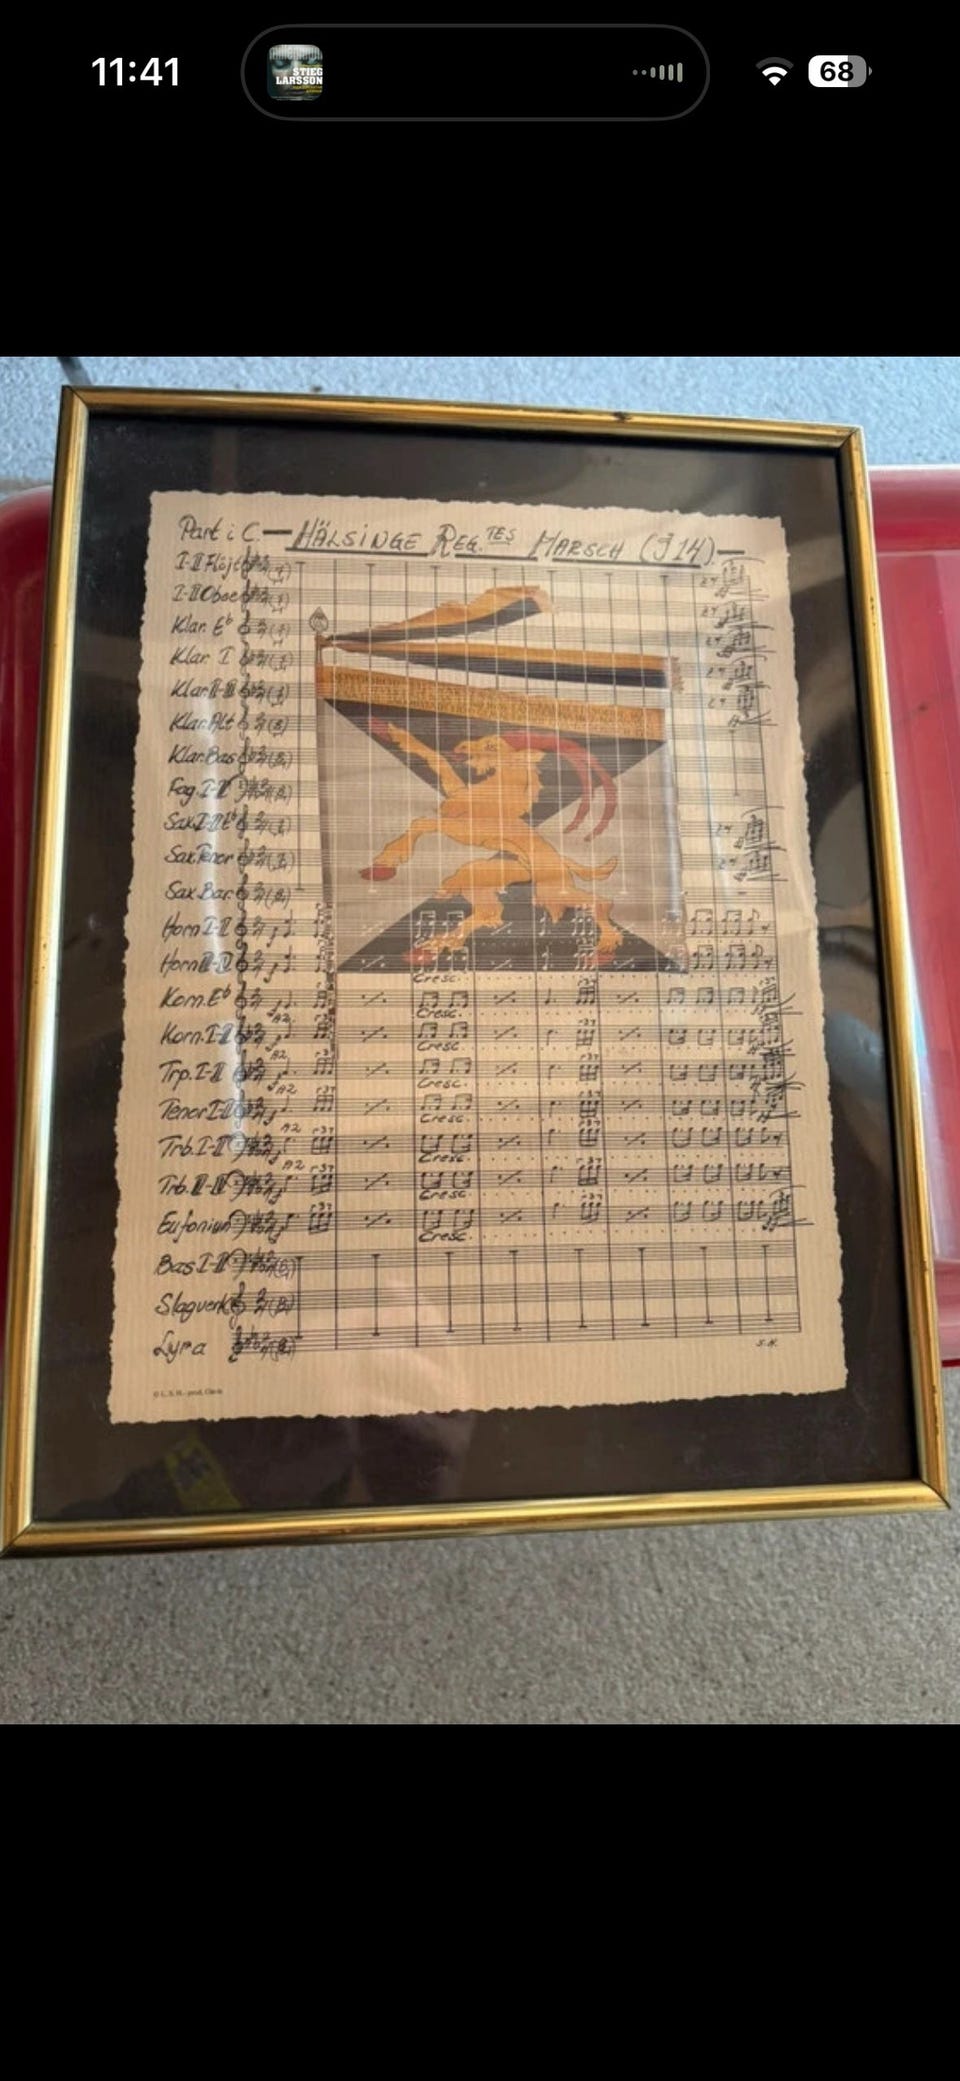 11:41
STIEG
LARSSON
68
Part i C. — HÄLSINGE REG.TES MARSCH (I 14). —
I-II Flöjt
I-II Oboe
Klar. Eb
Klar I
Klar. II-III
Klar. Alt
Klar. Bas
Fag. I-II
Sax. I-II Eb
Sax. Tenor
Sax. Bar.
Horn I-II
Horn III-IV
Cresc.
Korn. Eb
Cresc.
A2.
Korn. I-II
Cresc.
A2
Trp. I-II
Cresc.
A2
Tenor I-II
Cresc.
A2
Trb. I-II
Cresc.
A2
Cresc.
Eufonium
Cresc.
Bas I-II
Slagverk
Lyra
S.H.